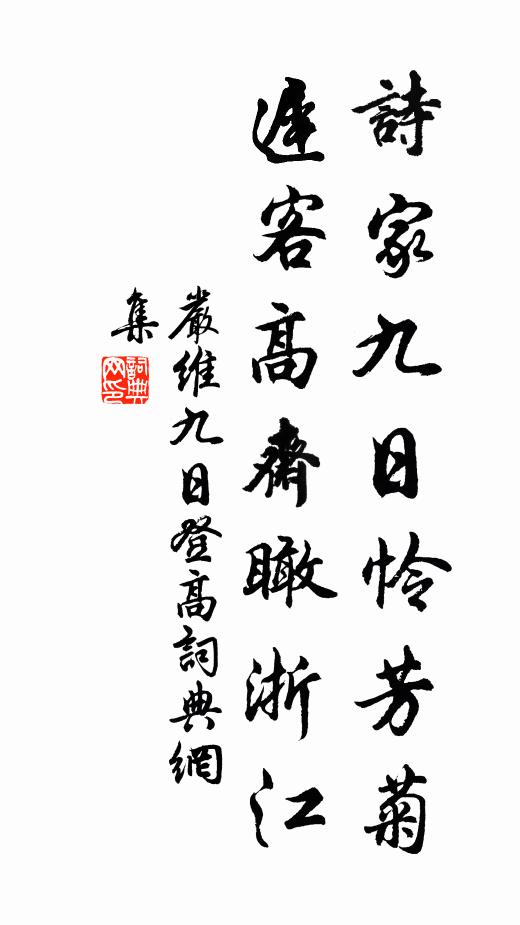 詩家九日怜芳菊
遲客高齋瞰浙江
嚴維九日登高詞典網
集
詞典网印